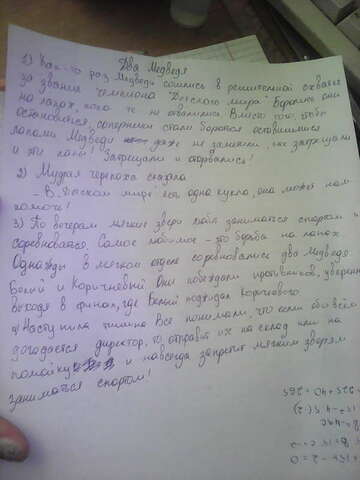 Два Медведя
1) Как-то раз Медведи сошлись в решительной схватке
за звание чемпиона "Детского мира" Боролись они
на лапах, пока те не отвалились Вместо того, чтобы
остановился, соперники стали бороться оставшимися
лапами Медведи даже не заметили, как затрещали
и эти лапы! Затрещали и оторвались!
2) Мудрая черепаха сказала
- В "Детском мире" есть одна кукла, она может нам
помочь!
3) По вечерам мягкие звери любят заниматься спортом и
соревноваться. Самое любимое - это борьба на лапах
Однажды в мягком отделе соревновались два Медведя
Белый и Коричневый Они побеждали противников, уверенно
выходя в финал, где Белый поджидал Коричневого
4) Наступила тишина Все понимали, что если обо всём
догадается директор, то отправит их на склад или на
помойку и навсегда запретит мягким зверям
заниматься спортом!